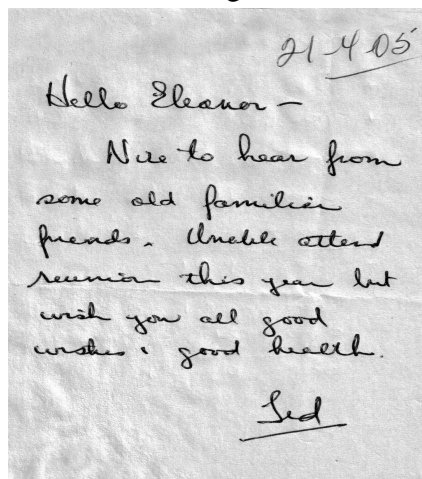 21-4-05
Hello Eleanor –
Nice to hear from
some old familiar
friends. Unable attend
reunion this year but
wish you all good
wishes & good health.
Ted